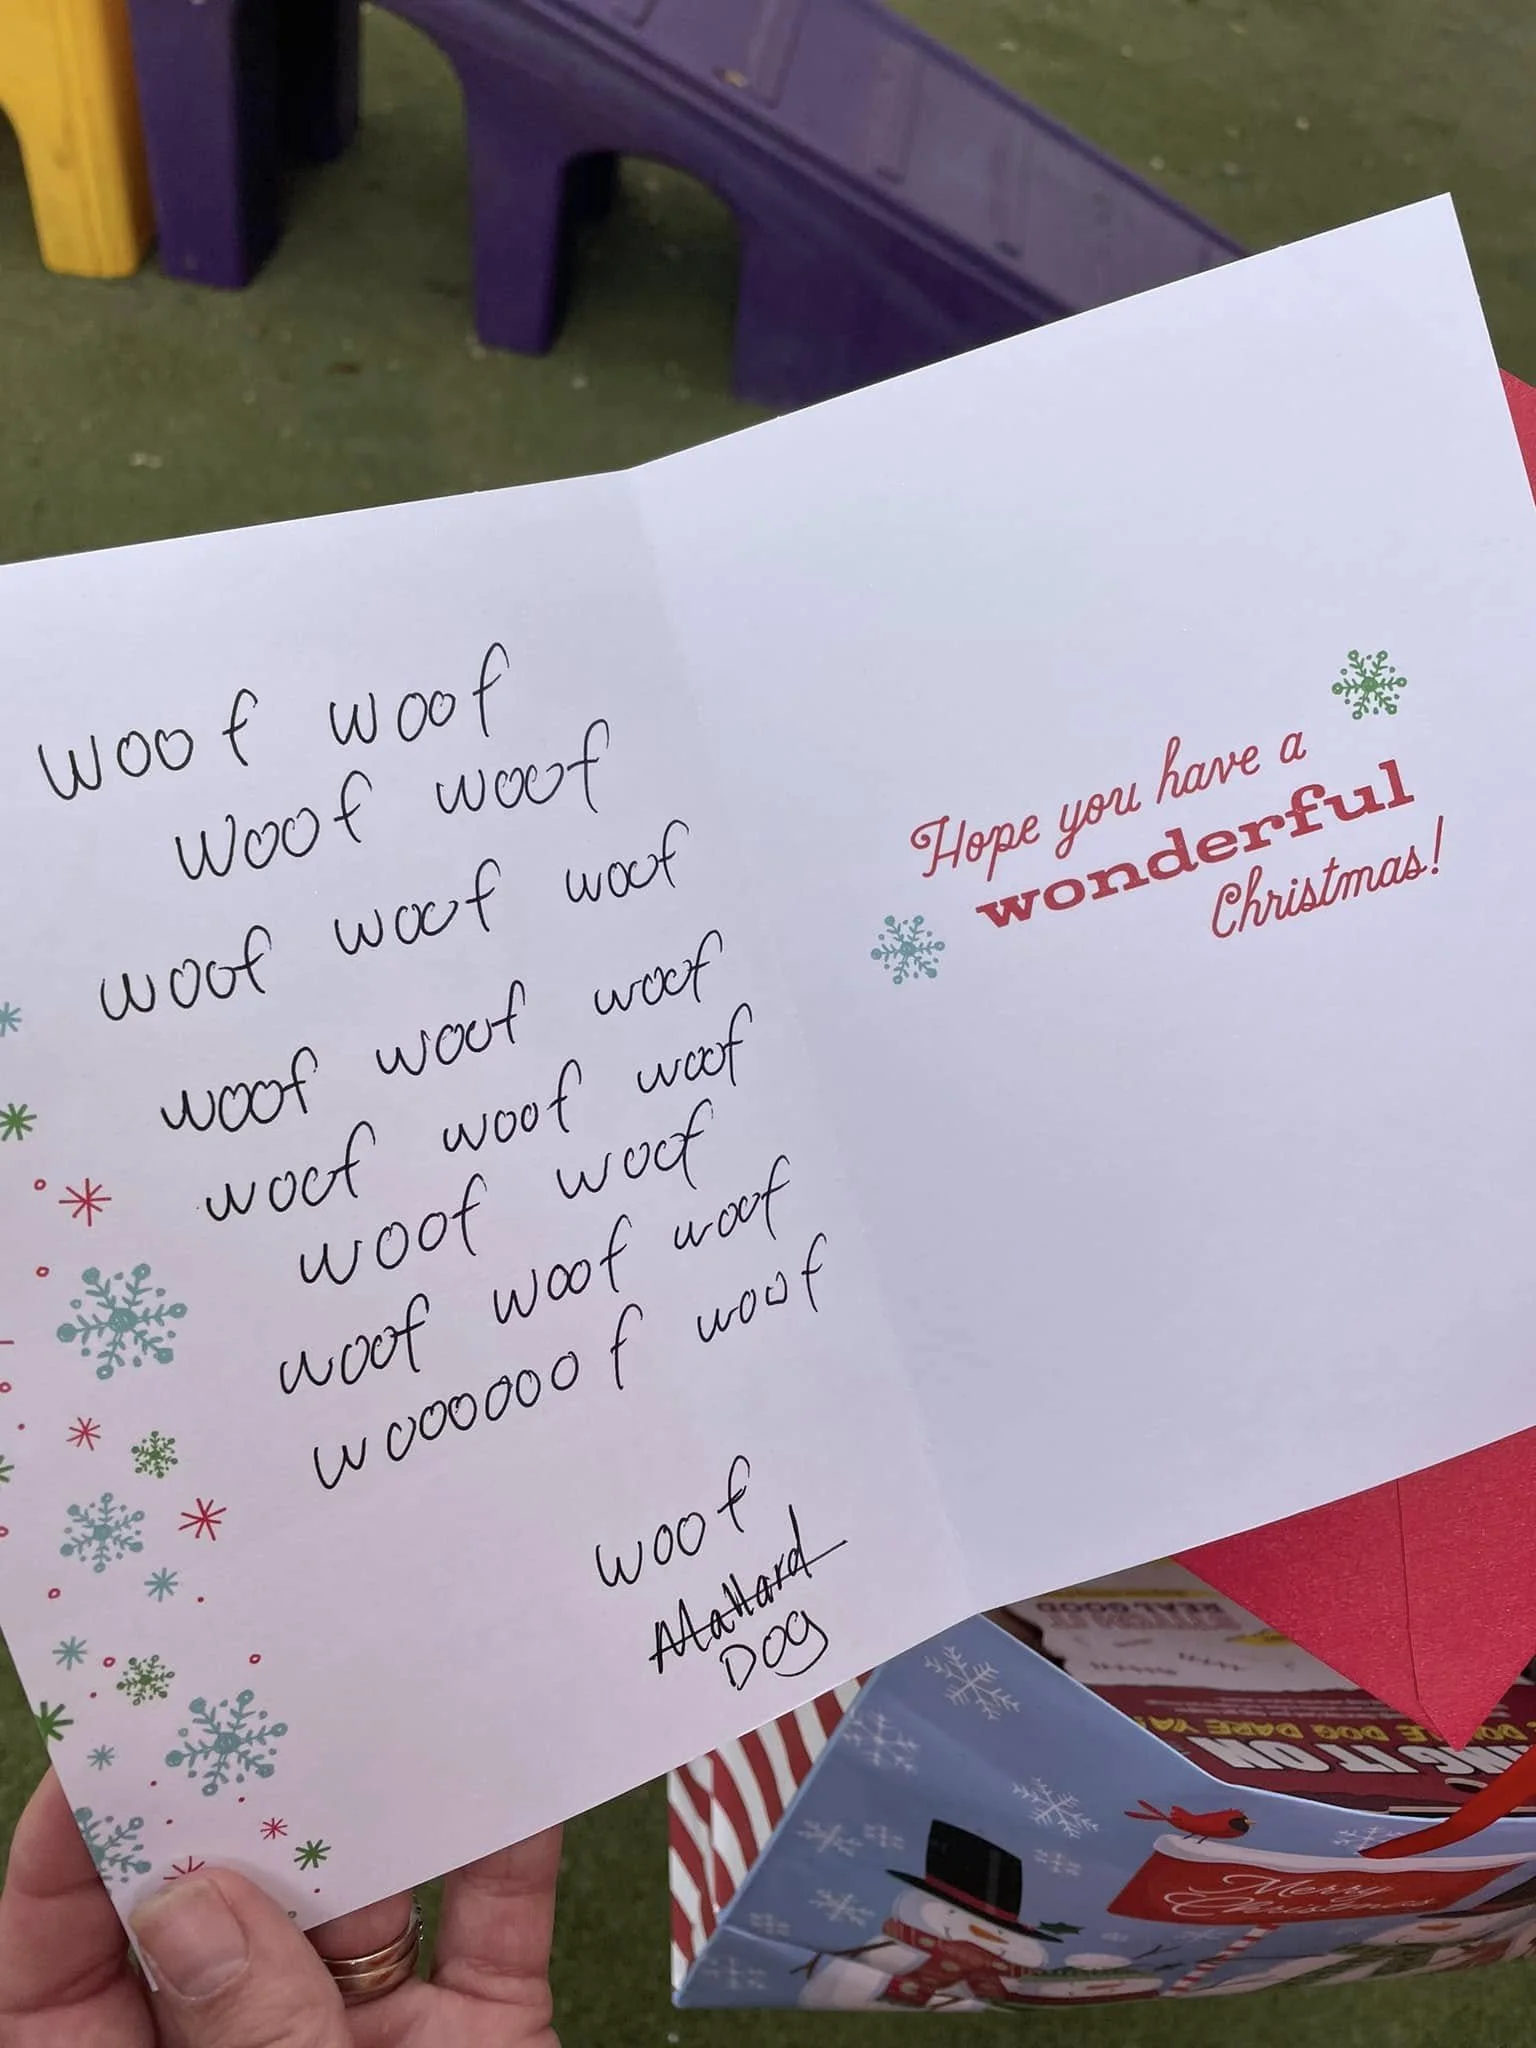 woof woof
woof woof
woof woof woof
woof woof woof
woof woof woof
woof woof
woof woof woof
woooooof woof
woof
Mallard
DOg
Hope you have a
wonderful
Christmas!
REAL GOOD
DOUBLE DOG DARE YA
BRING IT ON
Merry
Christmas